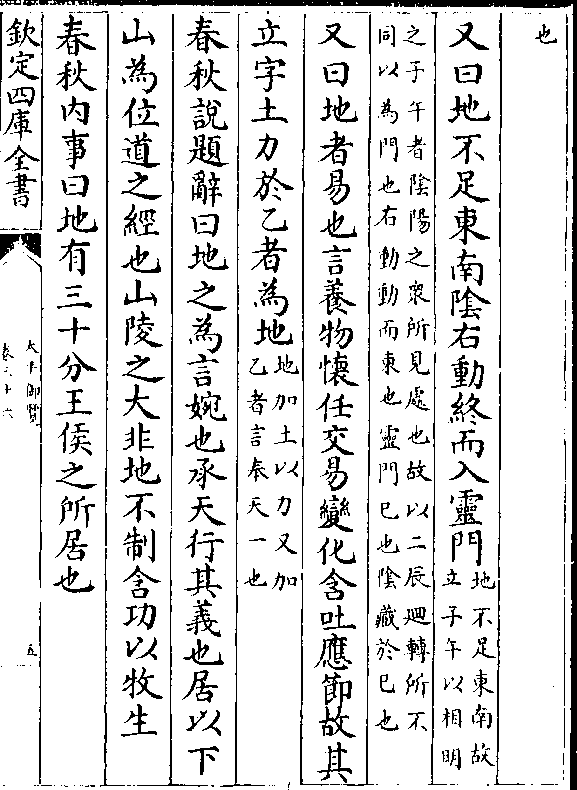 也
又曰地不足東南陰右動終而入靈門地不足東南故立子午以相明
之子午者陰陽之衆所見處也故以二辰廻轉所不同以為門也右動動而東也靈門巳也陰藏於巳也
又曰地者易也言養物懐任交易變化含吐應節故其
立字土力於乙者為地地加土以力又加乙者言奉天一也
春秋說題辭曰地之為言婉也承天行其義也居以下
山為位道之經也山陵之大非地不制含功以牧生
春秋内事曰地有三十分王侯之所居也
欽定四庫全書
太平御覽
卷三十六
五